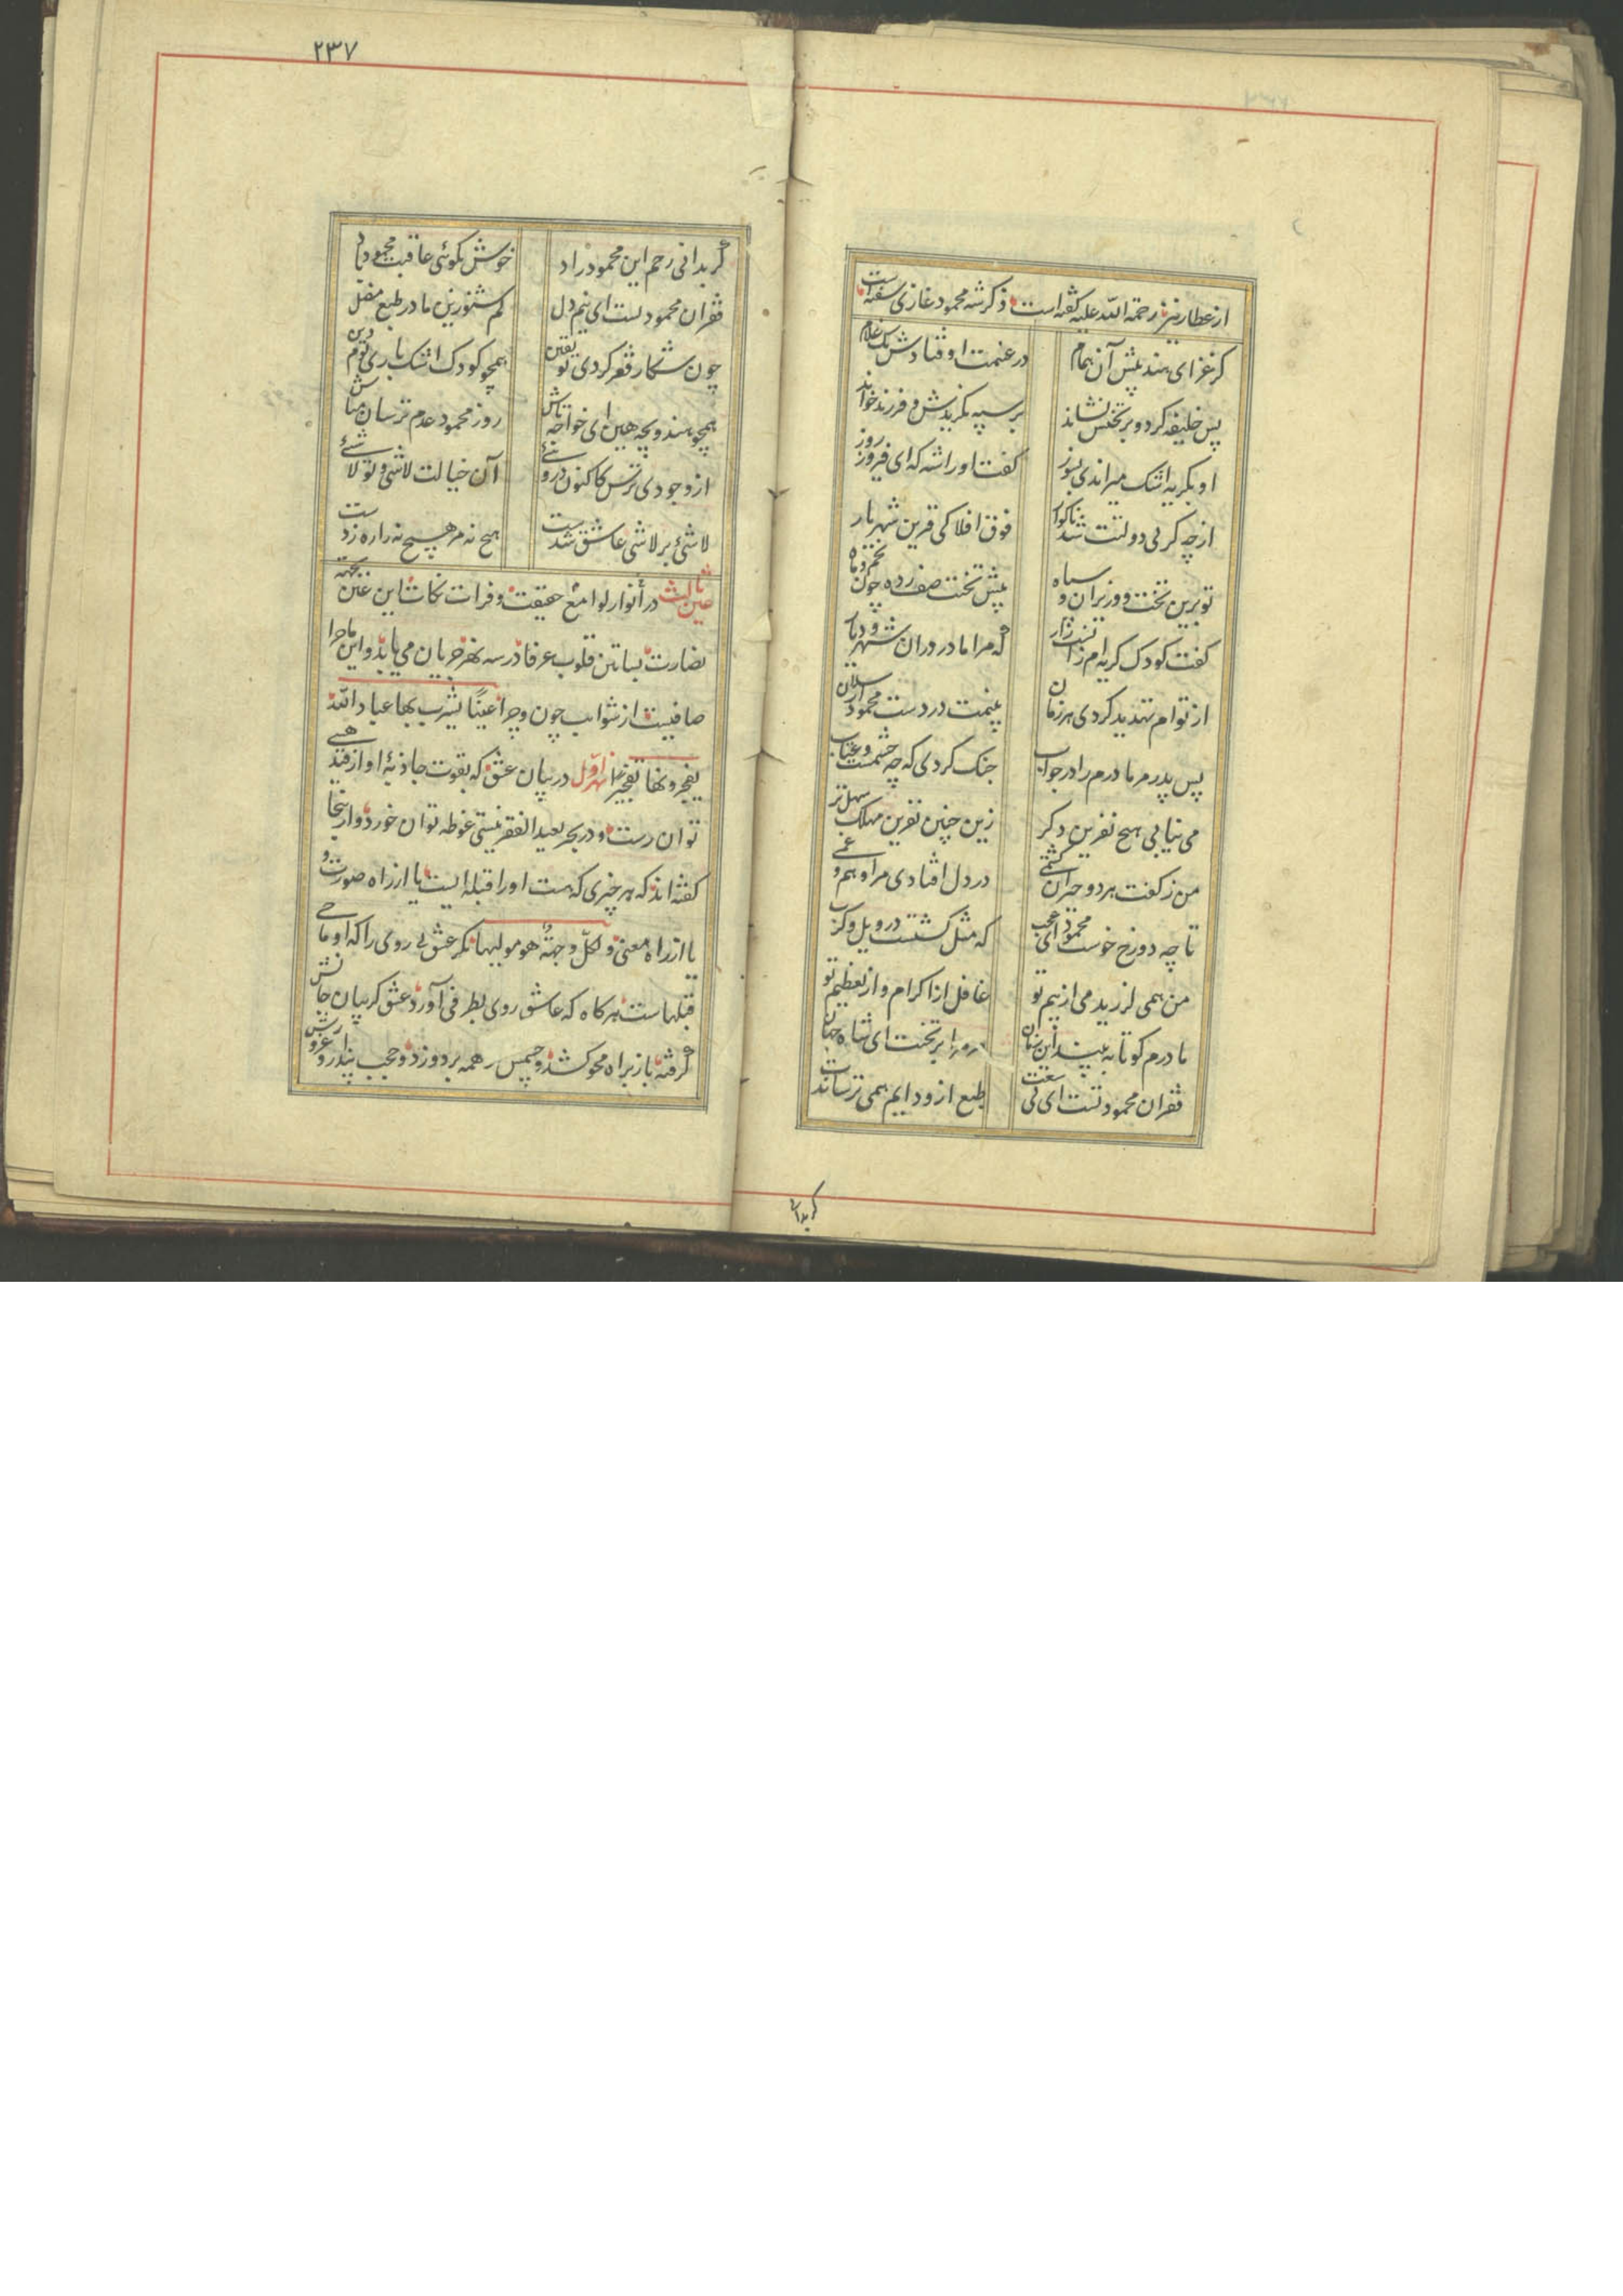 از عطار نیز رحمة الله علیه گفته است ذکر شه محمود غازی سفته است
کز غزای هند پیش آن همام در غنیمت اوفتادش یک غلام
پس خلیفه کرد و بر تختش نشاند بر سپه بگزیدش و فرزند خواند
او بگریه اشک میراندی بسوز گفت او را شه که ای فیروز روز
از چه گریی دولتت شد ناگوار فوق افلاکی قرین شهریار
تو برین تخت و وزیران و سپاه پیش تخت صف زده چون نجم و ماه
گفت کودک گریه ام زانست زار که مرا مادر در آن شهر و دیار
از توام تهدید کردی هر زمان بینمت در دست محمود ارسلان
پس پدر مر مادرم را در جواب جنک کردی که چه خشمست و عتاب
می نیابی هیچ نفرین دکر زین چنین نفرین مهلک سهل تر
من ز گفت هر دو حیران گشتمی در دل افتادی مرا وهم و غمی
تا چه دوزخ خوست محمود ای عجب که مثل گشتست در ویل و کرب
من همی لرزیدمی از بیم تو غافل از اکرام و از تعظیم تو
مادرم کو تا به بیند این زمان مر مرا بر تخت ای شاه جهان
فقر آن محمود تست ای بی سعت طبع ازو دایم همی ترساندت
کر بدانی
۲۳۷
گر بدانی رحم این محمود راد خوش بگوئی عاقبت محمود باد
فقر آن محمود تست ای بیم دل کم شنو زین مادر طبع مضل
چون شکار فقر کردی تو یقین همچو کودک اشک باری یوم دین
همچو هندو بچه هین ای خواجه تاش روز محمود عدم ترسان مباش
از وجودی ترس کاکنون در وئی آن خیالت لاشی و تو لاشئی
لاشئ بر لاشی عاشق شدست هیچ نه مر هیچ نه را ره زدست
عین ثالث در أنوار لوامع حقیقت و فرات نکات این عین بجهة
نضارت بساتین قلوب عرفا در سه نهر جریان می یابد و این ماجرا
صافیست از شوایب چون و چرا عینًا یشرب بها عباد الله
یفجرونها تفجیرا نهر اول در بیان عشق که بقوت جاذبهٔ او از قید هستی
توان رست و در بحر بعید القعر نیستی غوطه توان خورد و از اینجا
گفته اند که هر چیزی که هست او را قبله ایست یا از راه صورت و
یا از راه معنی و لکلّ وجهةٌ هو مولیها مگر عشق بی روی را که او ماحی
قبلهاست هر کاه که عاشق روی بطرفی آورد عشق گریبان جانش
گرفته باز براه محو کشد و چشمش از همه بر دوزد و حجب پندار و غرورش